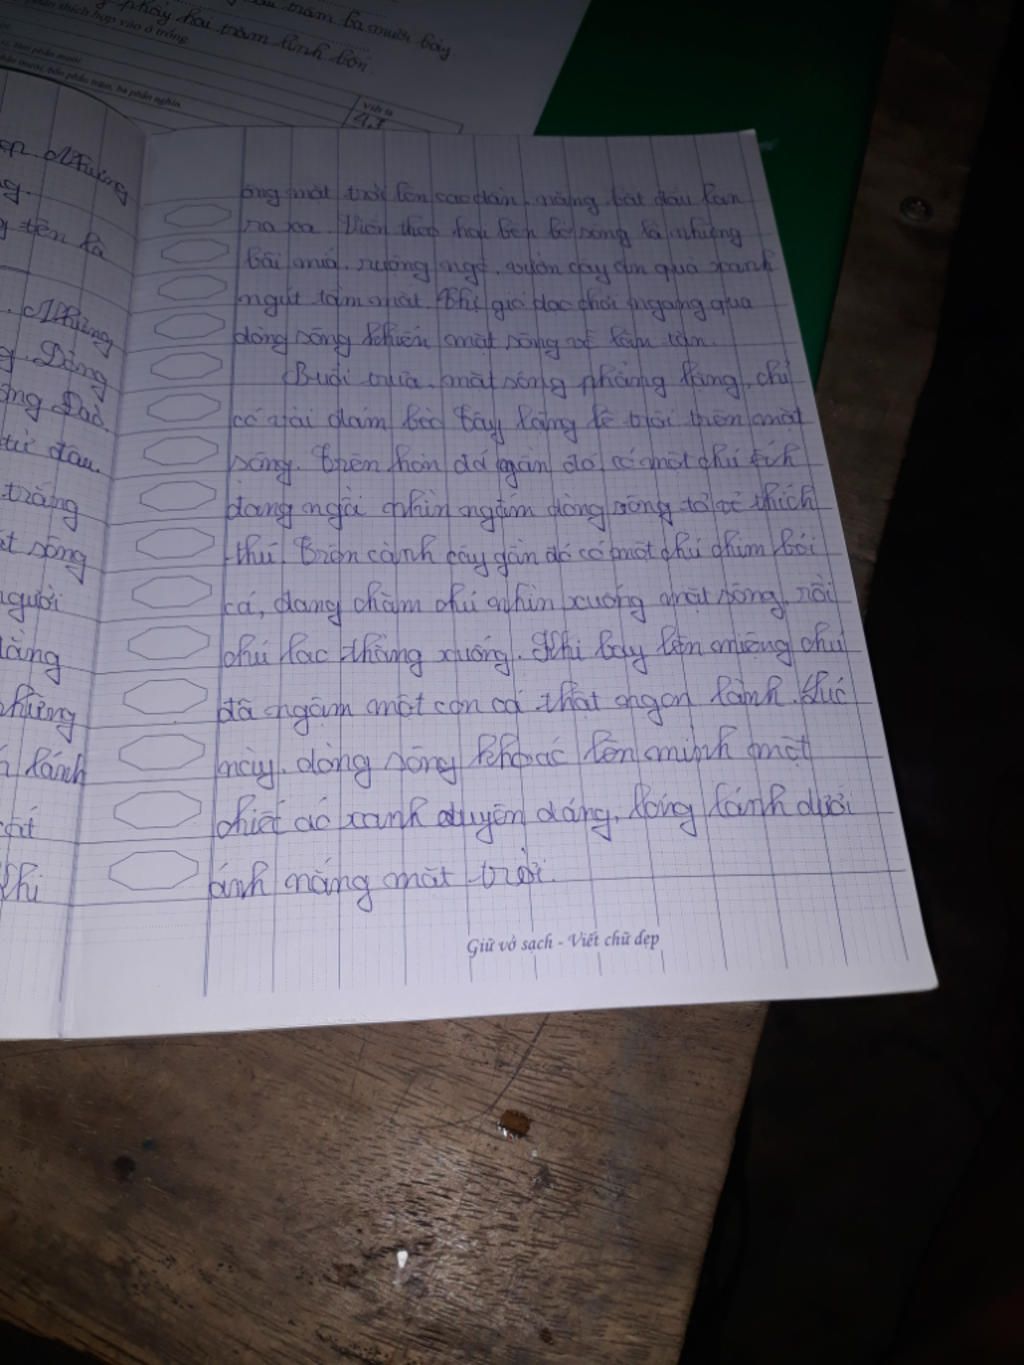 trăm ba mươi bảy
phẩy hai trăm linh bốn.
thích hợp vào ô trống.
Viết là
ẹp. Mường
g.
tên là
Những
g. Dòng
ông Đào.
từ đâu.
trăng
t sông
người
lặng
những
lánh
Khi
ông mặt trời lên cao dần, nắng bắt đầu lan
ra xa. Viền theo hai bên bờ sông là những
bãi mía, ruộng ngô, vườn cây ăn quả xanh
ngút tầm mắt. Khi gió dạc thổi ngang qua
dòng sông khiến mặt sông vỗ lăn tăn.
Buổi trưa, mặt sông phẳng lặng, chỉ
có vài đám bèo tây lặng lẽ trôi trên mặt
sông. Trên hòn đá gần đó có một chú ếch
đang ngồi nhìn ngắm dòng sông tỏ vẻ thích
thú. Trên cành cây gần đó có một chú chim bói
cá, đang chăm chú nhìn xuống mặt sông, rồi
chú lao thẳng xuống. Khi bay lên miệng chú
đã ngậm một con cá thật ngon lành. Lúc
này, dòng sông khoác lên mình một
chiếc áo xanh duyên dáng, lóng lánh dưới
ánh nắng mặt trời.
Giữ vở sạch - Viết chữ đẹp